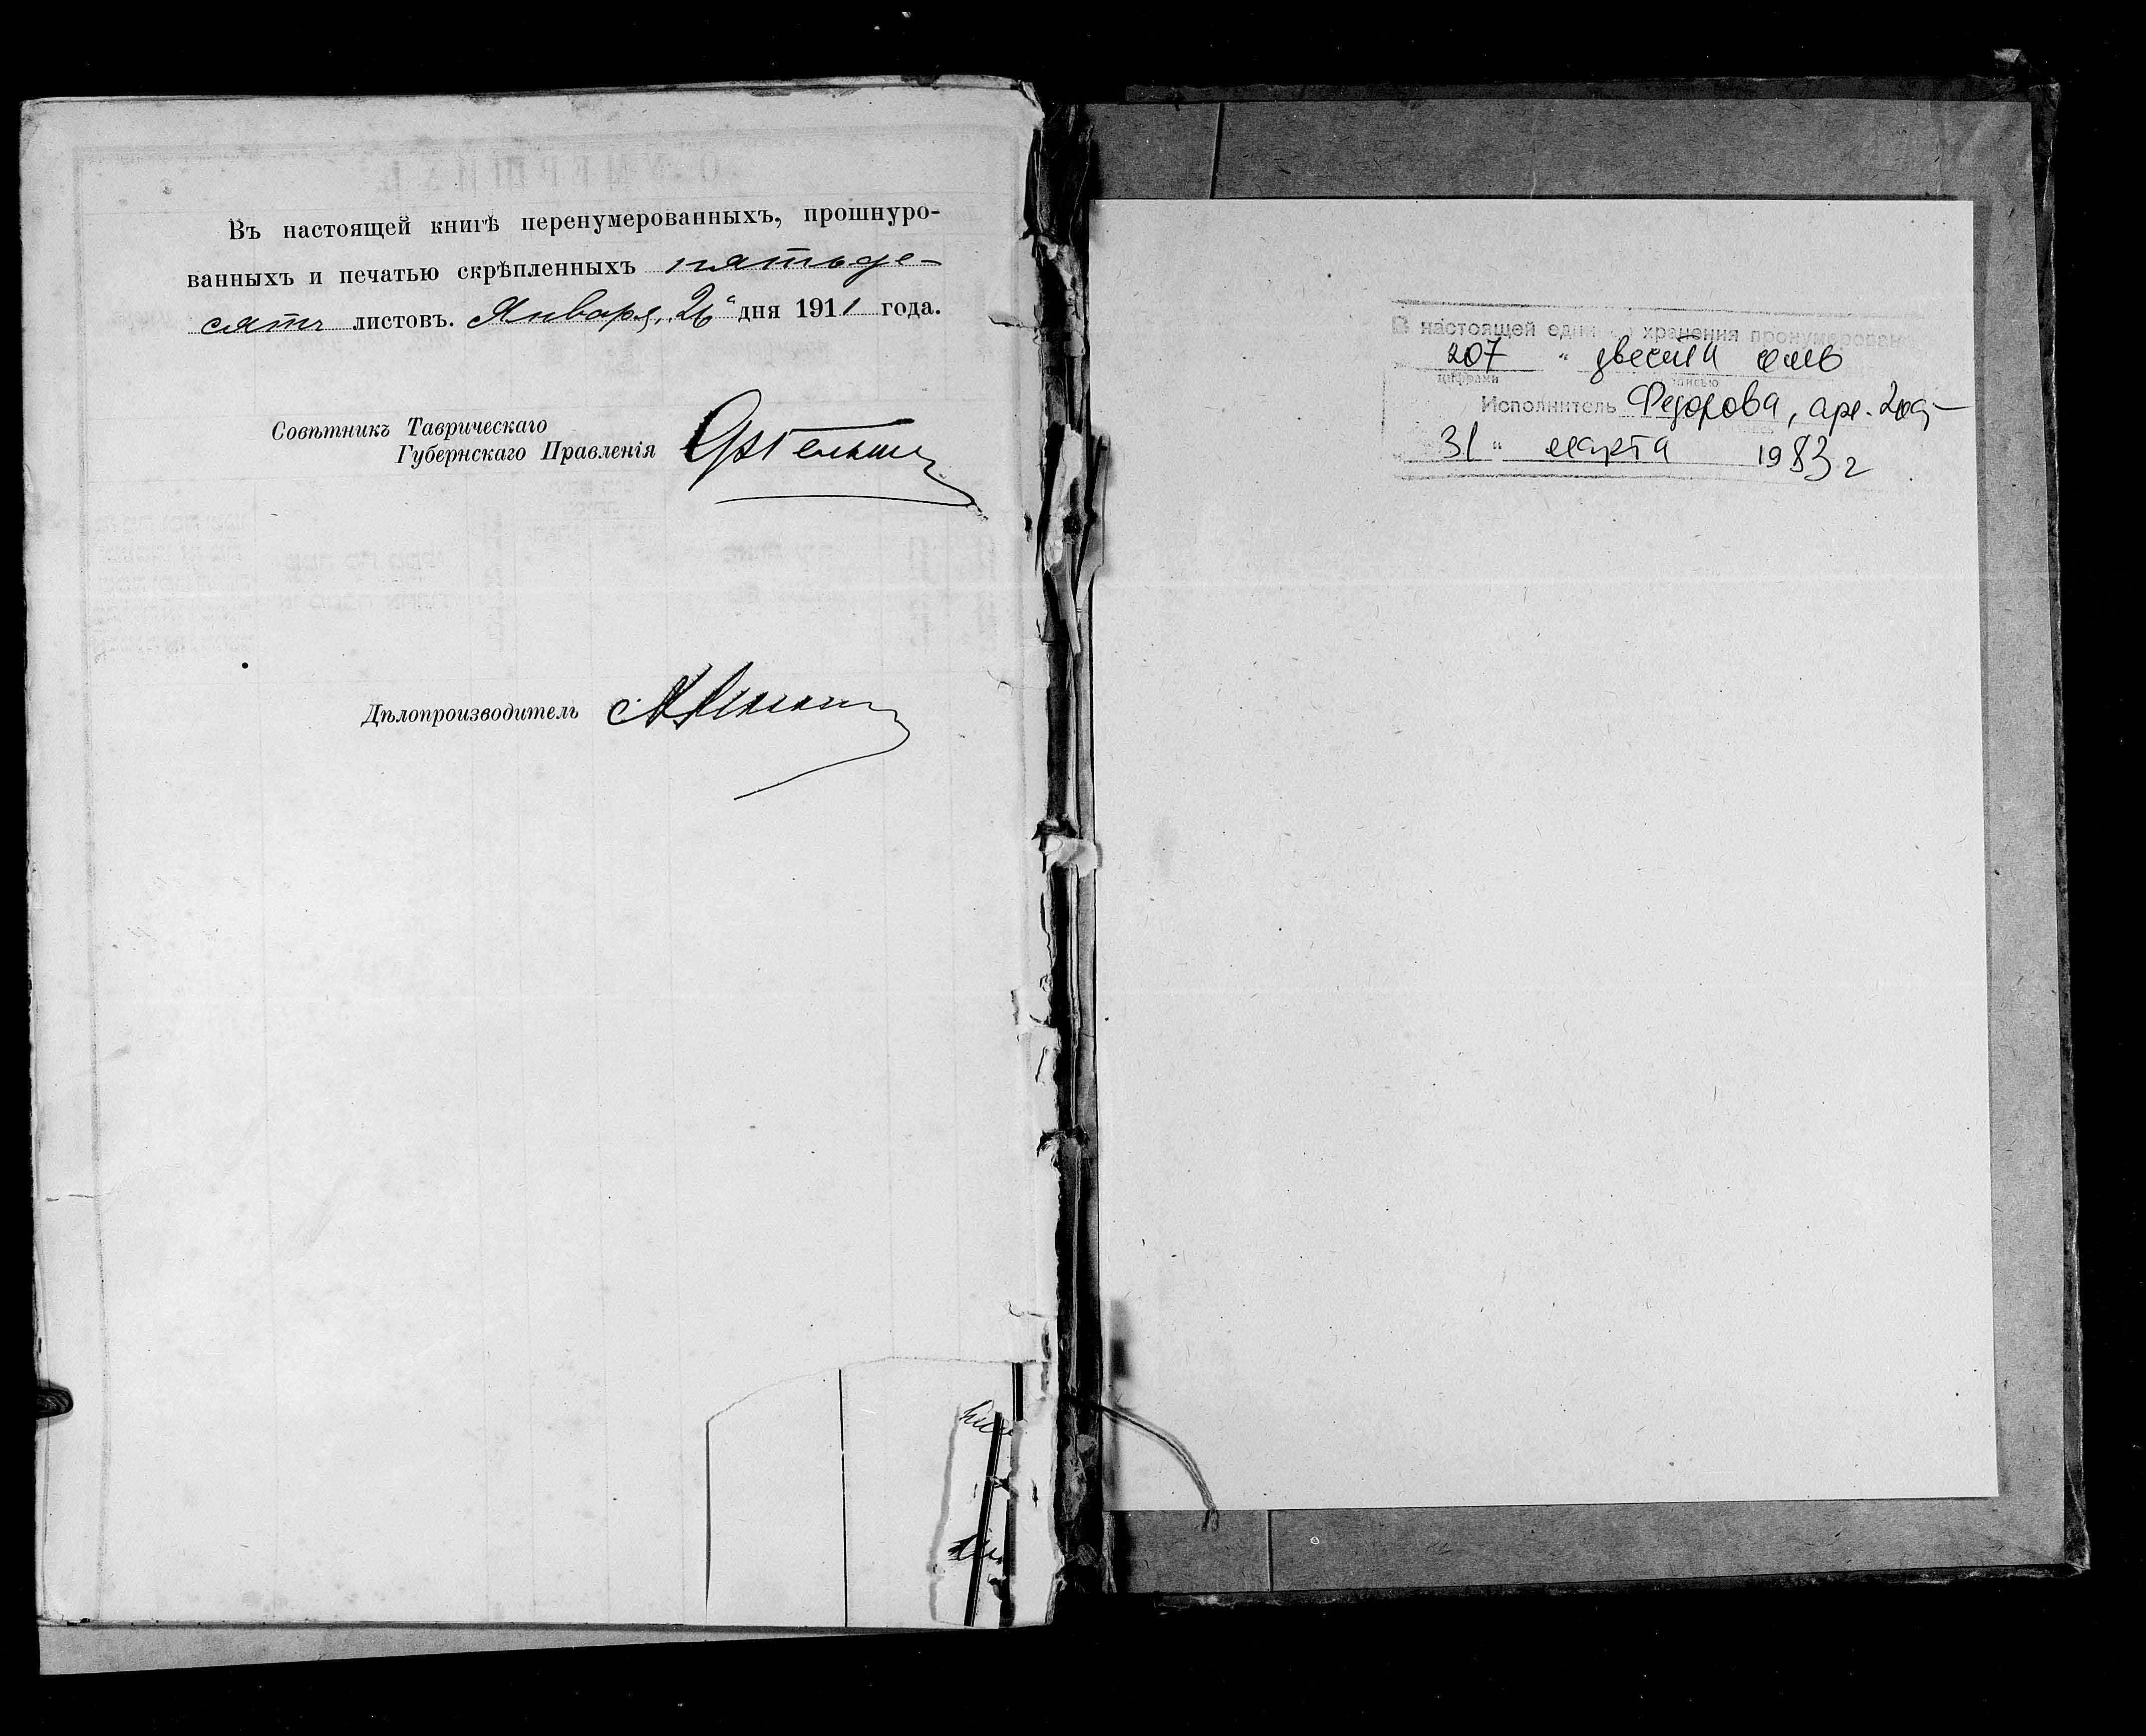 Въ настоящей книгѣ перенумерованныхъ, прошнуро-
ванныхъ и печатью скрѣпленныхъ пятьде-
сятъ листовъ. Января „26“ дня 1911 года.
Совѣтникъ Таврическаго
Губернскаго Правленія
Дѣлопроизводитель
В настоящей едини хранения пронумерован
207 “ двести семь
цифрами прописью
Исполнитель Федорова,
31 “ марта 1983 г